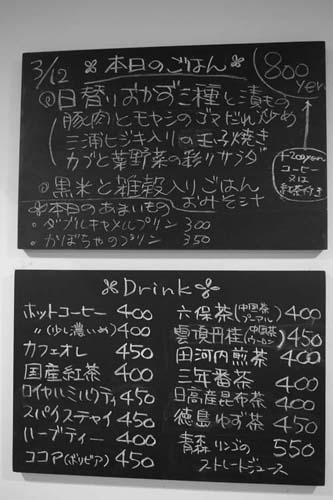 3/12 ❊本日のごはん❊
800yen
◎日替りおかず三種と漬もの
豚肉とモヤシのゴマだれ炒め
三浦ヒジキ入りの玉子焼き
カブと葉野菜の彩りサラダ
◎黒米と雑穀入りごはん
おみそ汁
+200yen
コーヒー
又は
紅茶付き
❊本日のあまいもの
・ダブルキャメルプリン 300
・かぼちゃのプリン 350
❊Drink❊
ホットコーヒー 400
〃(少し濃いめ) 400
カフェオレ 450
国産紅茶 400
ロイヤルミルクティ 450
スパイスチャイ 450
ハーブティー 400
ココア(ボリビア) 450
六保茶(中国茶プーアール) 400
雲頂丹桂(中国茶ウーロン) 450
田河内煎茶 400
三年番茶 400
日高産昆布茶 400
徳島ゆず茶 450
青森リンゴの 550
ストレートジュース